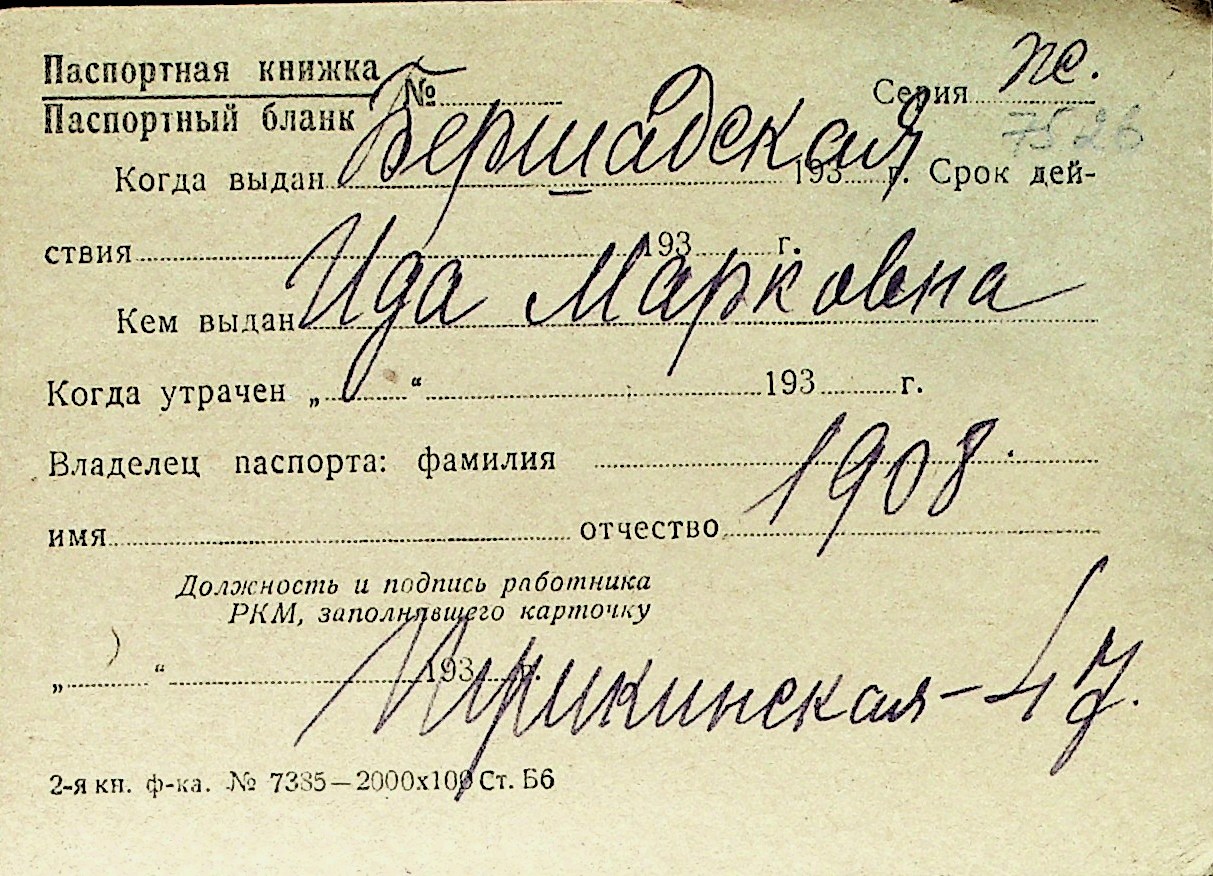 Паспортная книжка
Паспортный бланк № Серия пе.
Бершадская 7526
Когда выдан 193 г. Срок дей-
ствия 193 г.
Ида Марковна
Кем выдан
Когда утрачен „ “ 193 г.
Владелец паспорта: фамилия
1908.
имя отчество
Должность и подпись работника
РКМ, заполнявшего карточку
„ “ 193 г.
Пушкинская – 47.
2-я кн. ф-ка. № 7385—2000х100 Ст. Б6